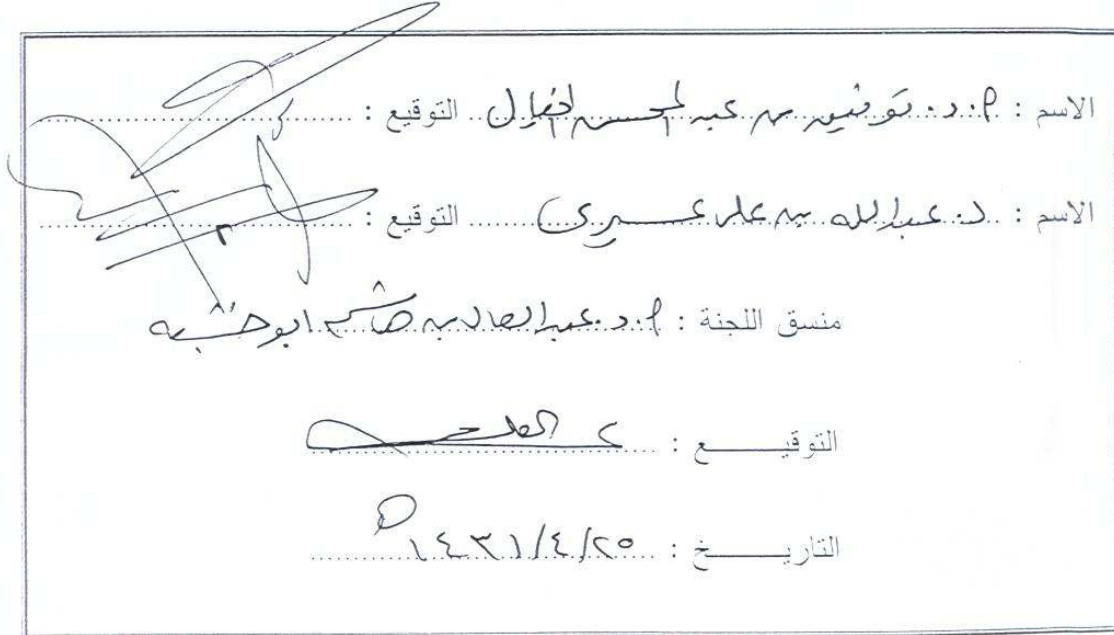 الاسم : أ.د. توفيق بن عبد المحسن الخيال التوقيع :
الاسم : د. عبدالله بن علي عسيري التوقيع :
منسق اللجنة : أ.د. عبدالعال بن هاشم ابوخشبه
التوقيـــــع :
التاريـــــخ : ١٤٣١/٤/٢٥ه